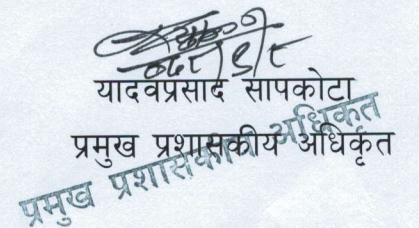 यादवप्रसाद सापकोटा
प्रमुख प्रशासकीय अधिकृत
प्रमुख प्रशासकीय अधिकृत